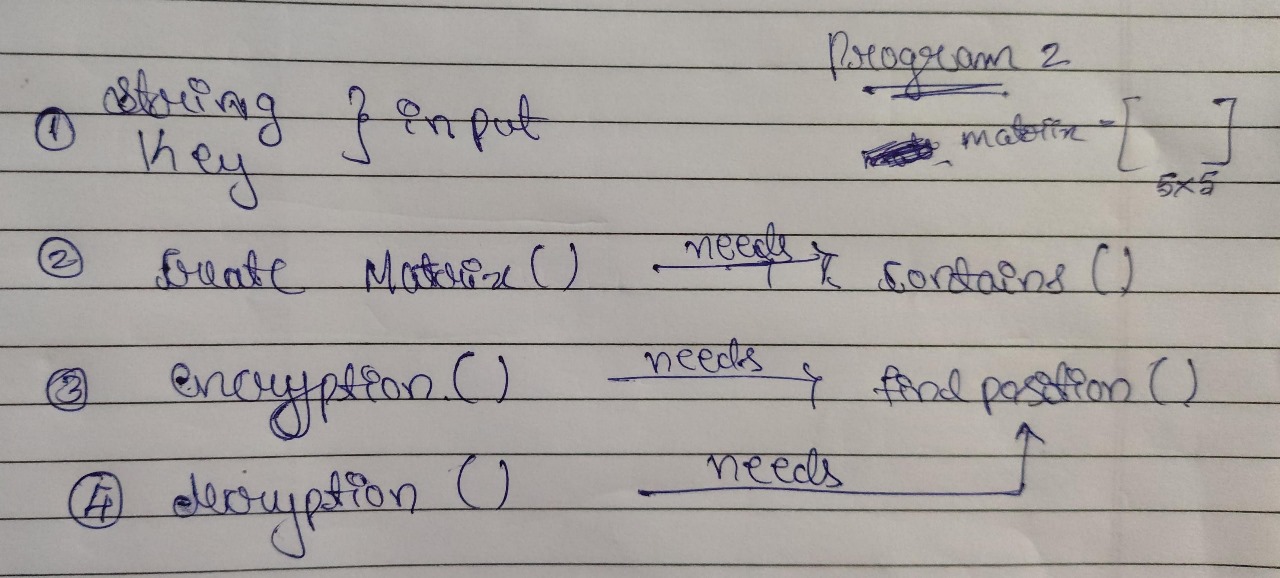 Program 2
① String
Key } input
matrix = [ ]
5x5
② Create Matrix() needs contains()
③ encryption() needs find position()
④ decryption() needs